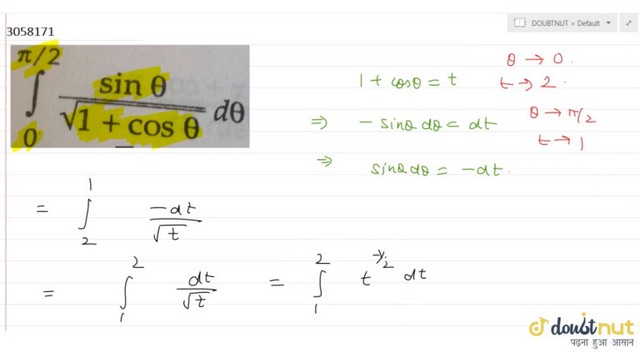 3058171
DOUBTNUT > Default
∫₀^{π/2} sin θ / √(1 + cos θ) dθ
1 + cosθ = t
θ → 0
t → 2
⇒ - sinθ dθ = dt
θ → π/2
t → 1
⇒ sinθ dθ = -dt
= ∫₂¹ -dt / √t
= ∫₁² dt / √t = ∫₁² t^{-1/2} dt
doubtnut
पढ़ना हुआ आसान